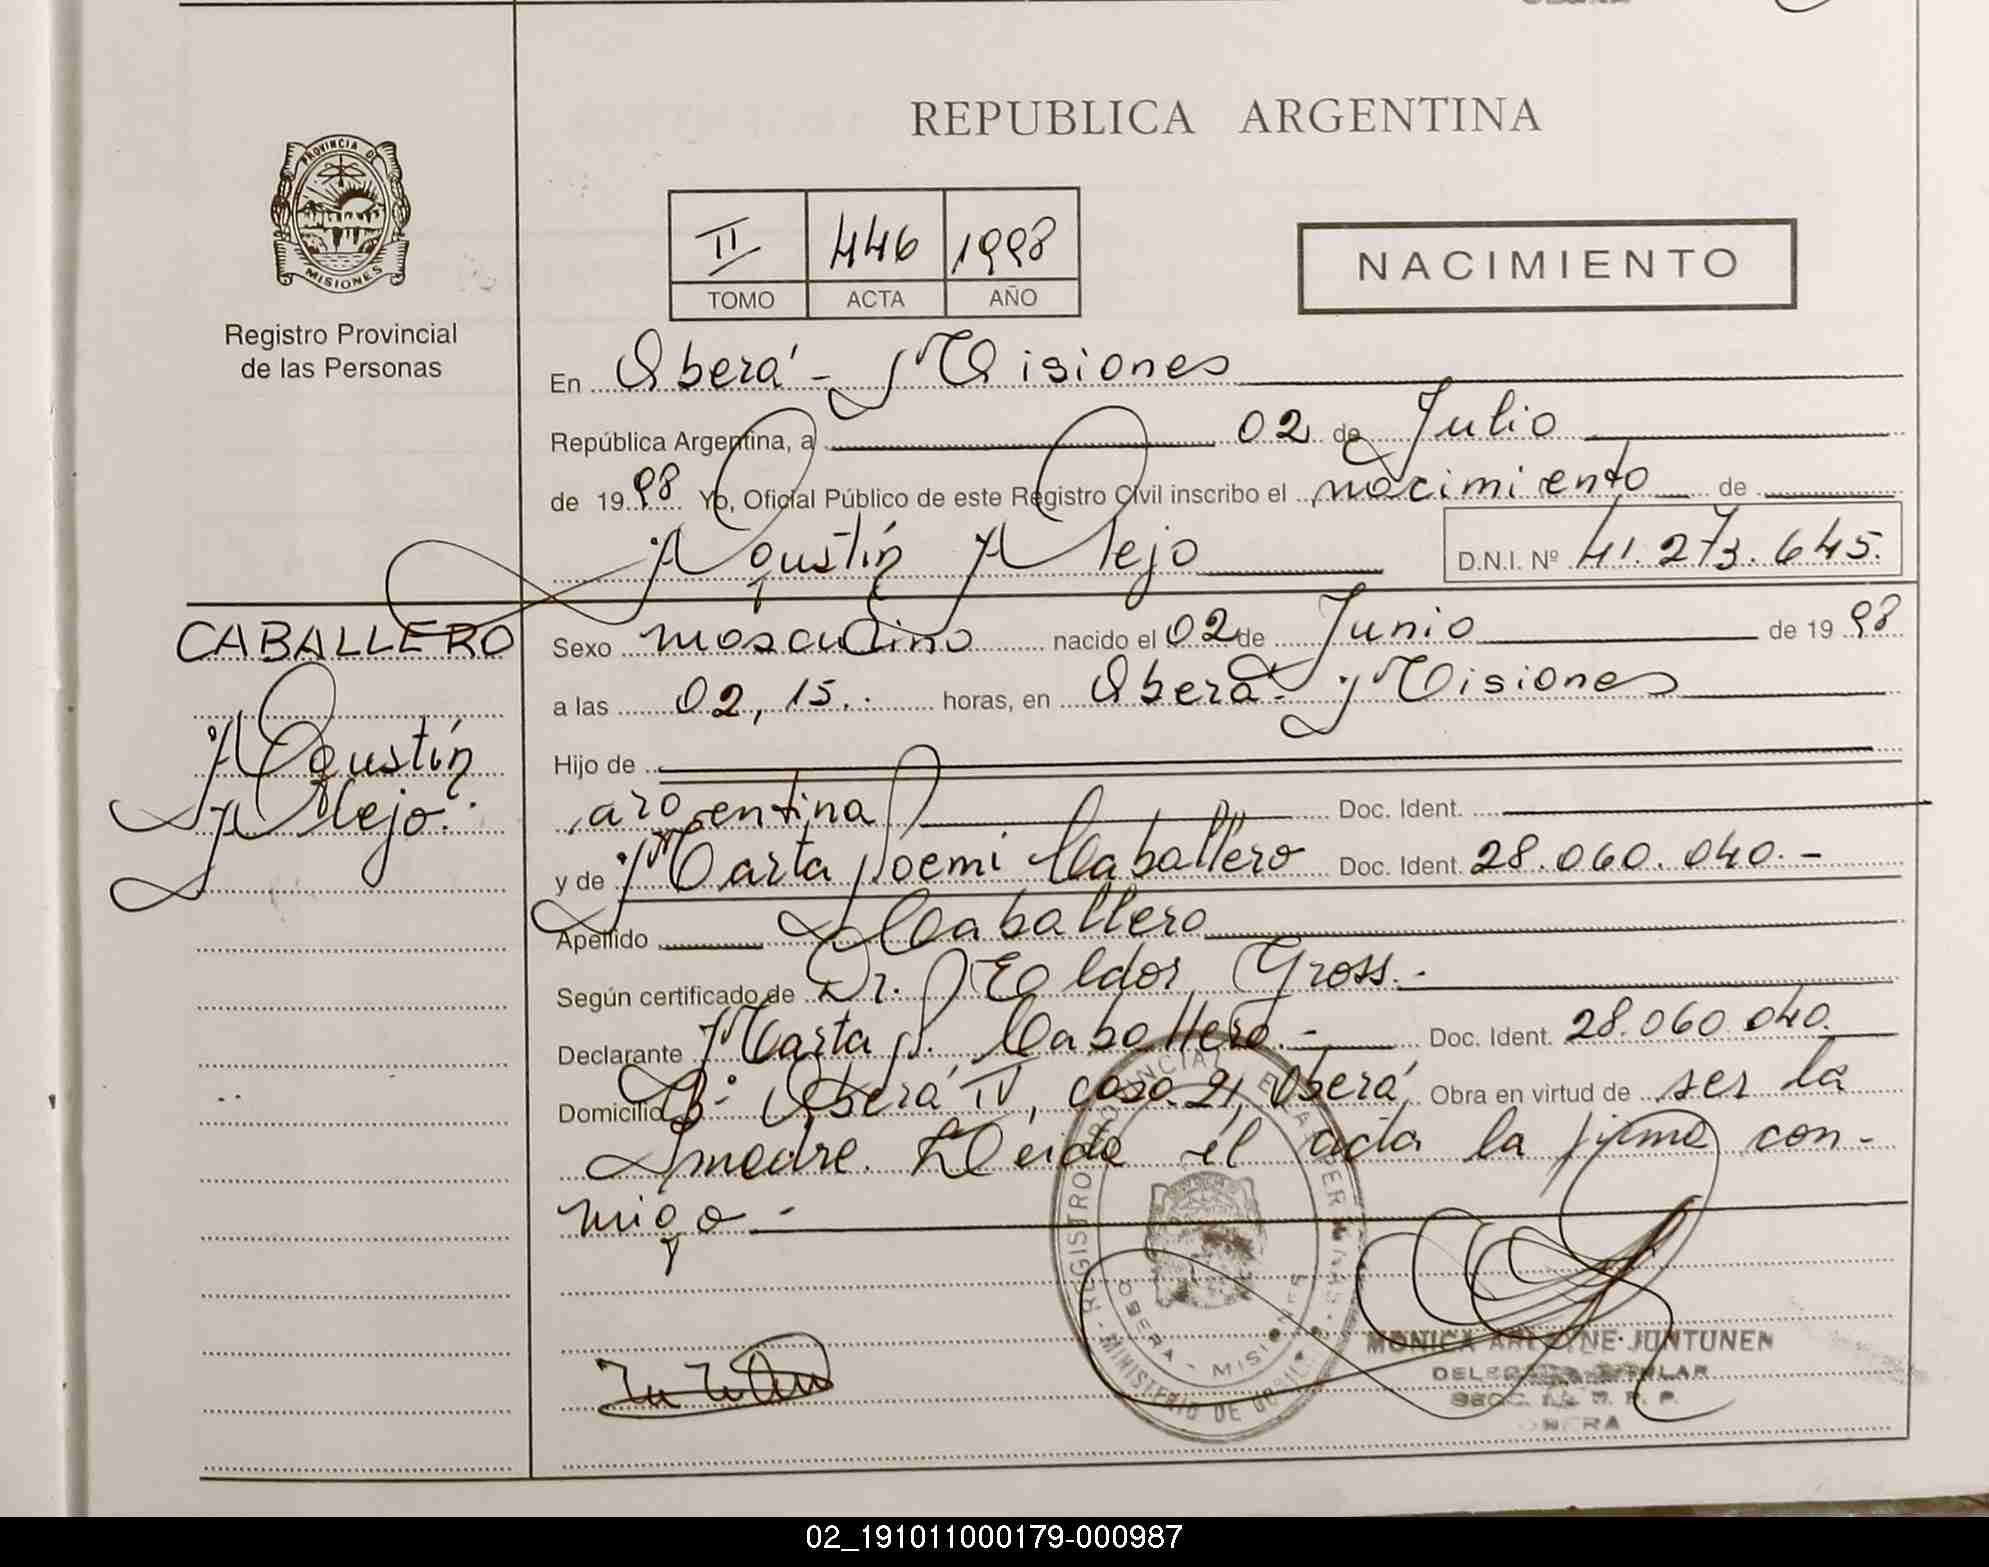 REPUBLICA ARGENTINA
PROVINCIA DE
MISIONES
Registro Provincial
de las Personas
II 446 1998
TOMO ACTA AÑO
NACIMIENTO
En Oberá - Misiones
República Argentina, a 02 de Julio
de 1998 Yo, Oficial Público de este Registro Civil inscribo el nacimiento de
Agustín Alejo D.N.I. Nº 41.273.645.
CABALLERO
Agustín
Alejo.
Sexo masculino nacido el 02 de Junio de 1998
a las 02,15. horas, en Oberá - Misiones
Hijo de
argentina Doc. Ident.
y de Marta Noemi Caballero Doc. Ident. 28.060.040.-
Apellido Caballero
Según certificado de Dr. Eldor Gross.-
Declarante Marta N. Caballero.- Doc. Ident. 28.060.040.
Domicilio Bº Oberá IV, casa 21, Oberá Obra en virtud de ser la
madre. Leida el acta la firma con-
migo.-
REGISTRO PROVINCIAL DE LAS PERSONAS
MINISTERIO DE GOBIERNO
OBERA - MISIONES
MONICA JUNTUNEN
OBERA
02_191011000179-000987